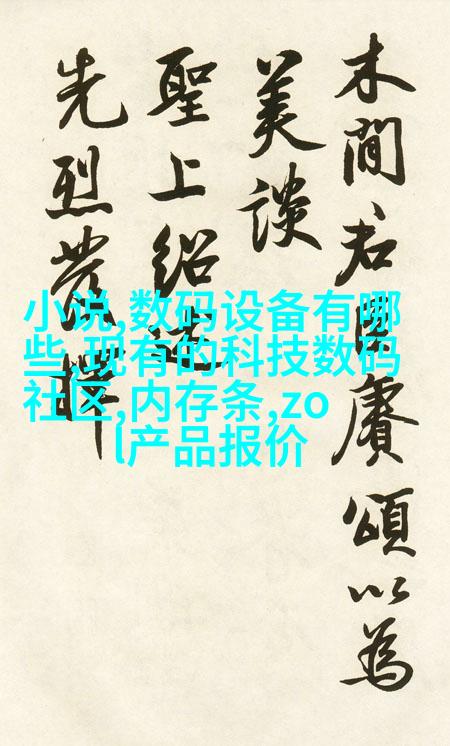 木間君臣賡頌以為
美談
聖上紹
先烈
小说,数码设备有哪
些,现有的科技数码
社区,内存条,zo
l产品报价